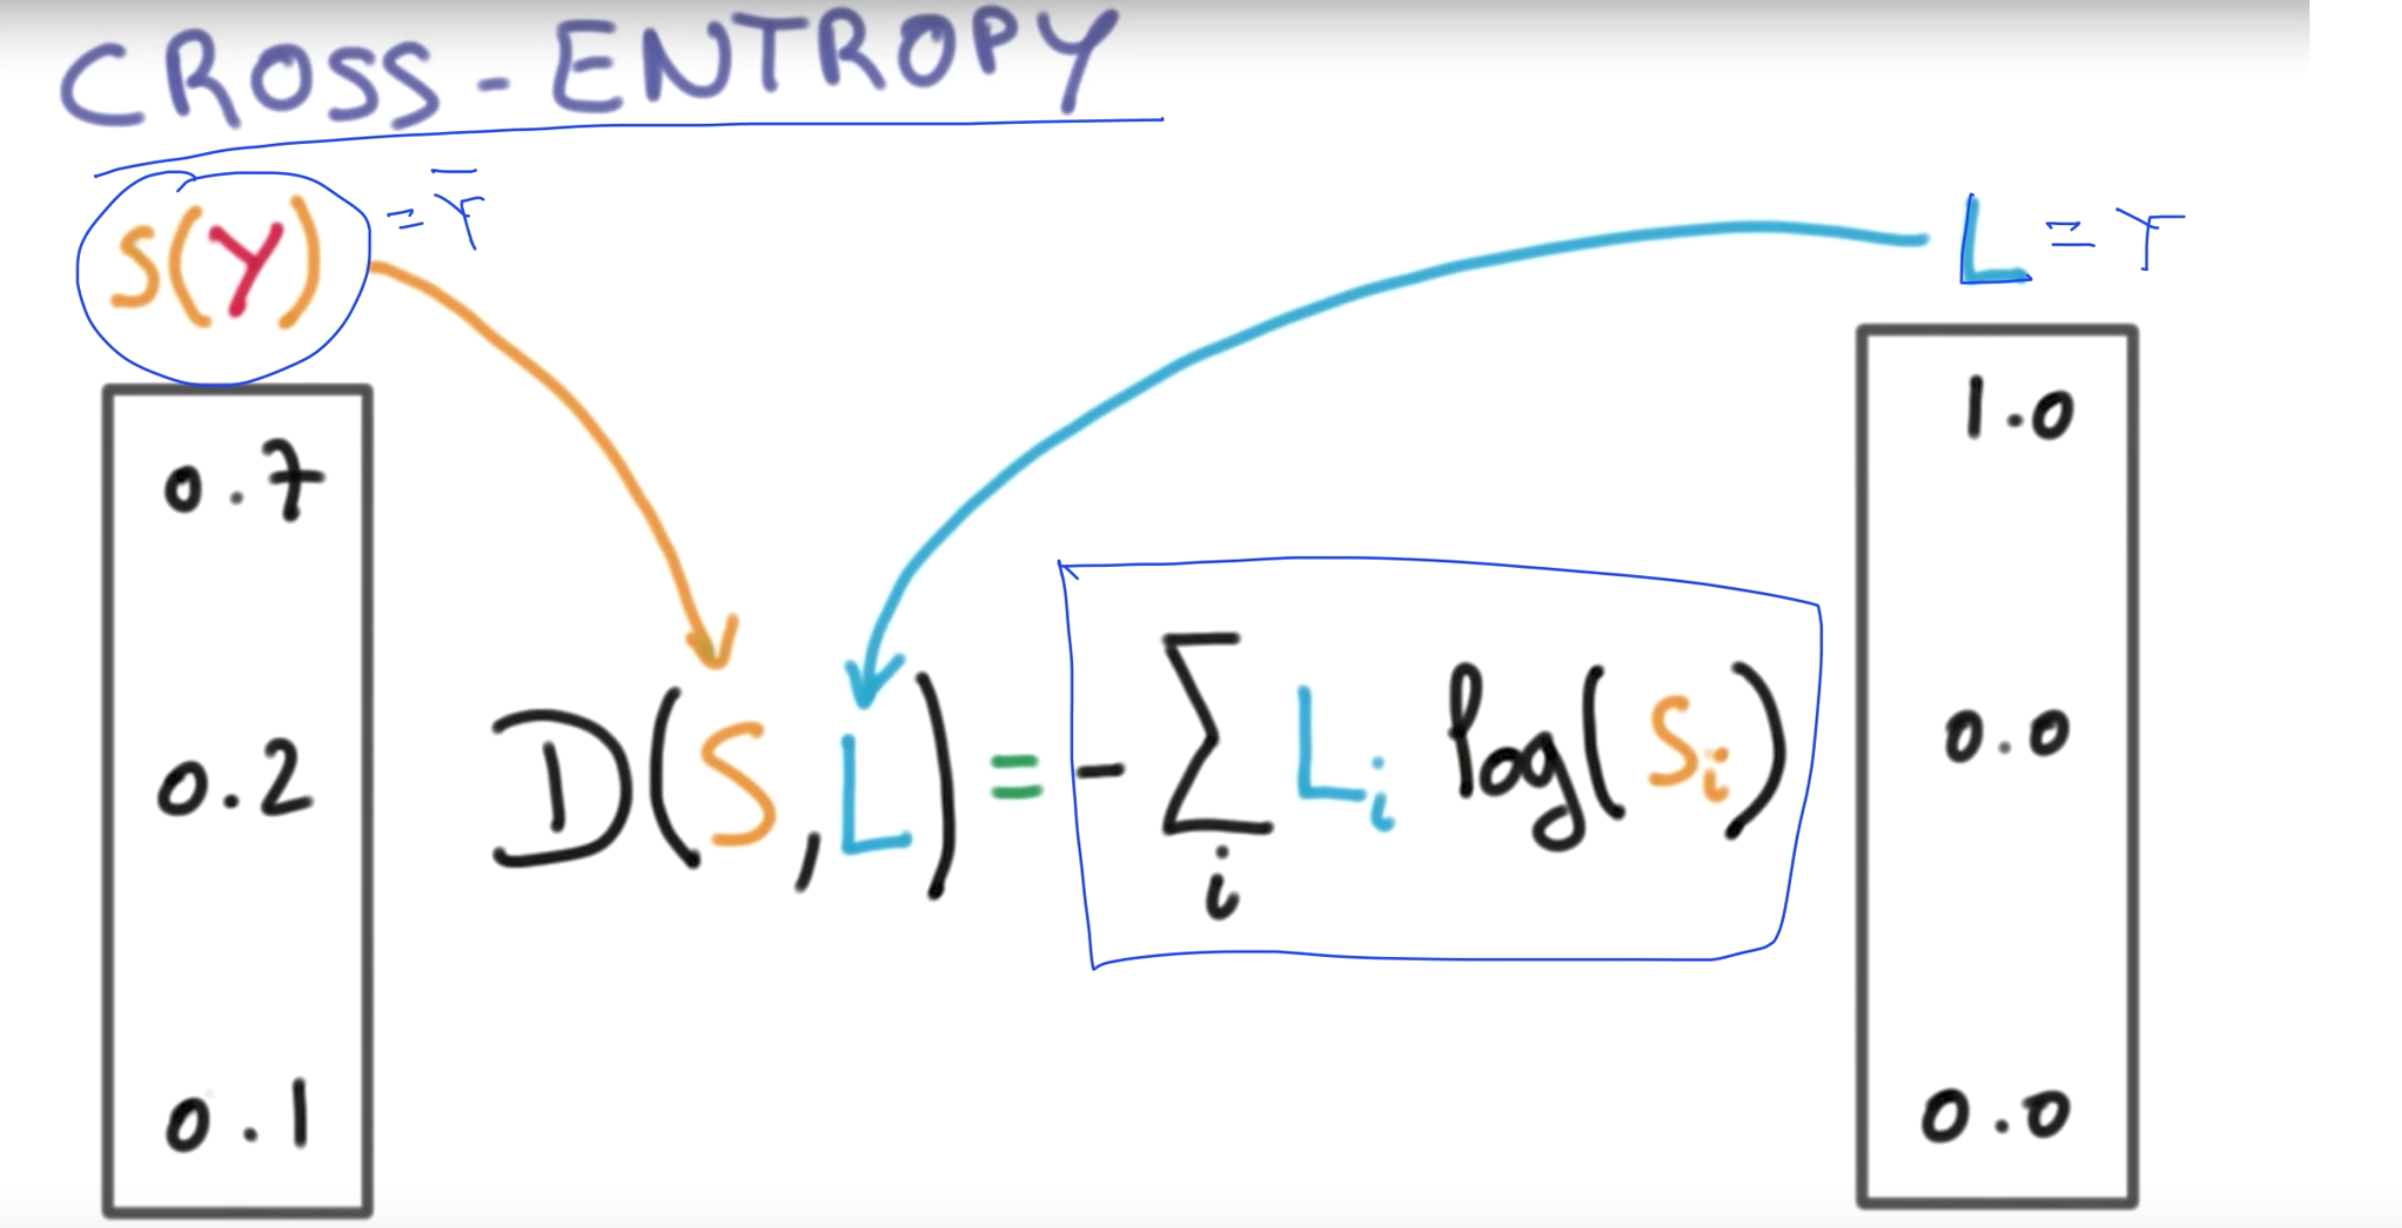 CROSS-ENTROPY
S(Y) = Ȳ
L = Y
0.7
0.2
0.1
D(S,L) = - Σ_i L_i log(S_i)
1.0
0.0
0.0